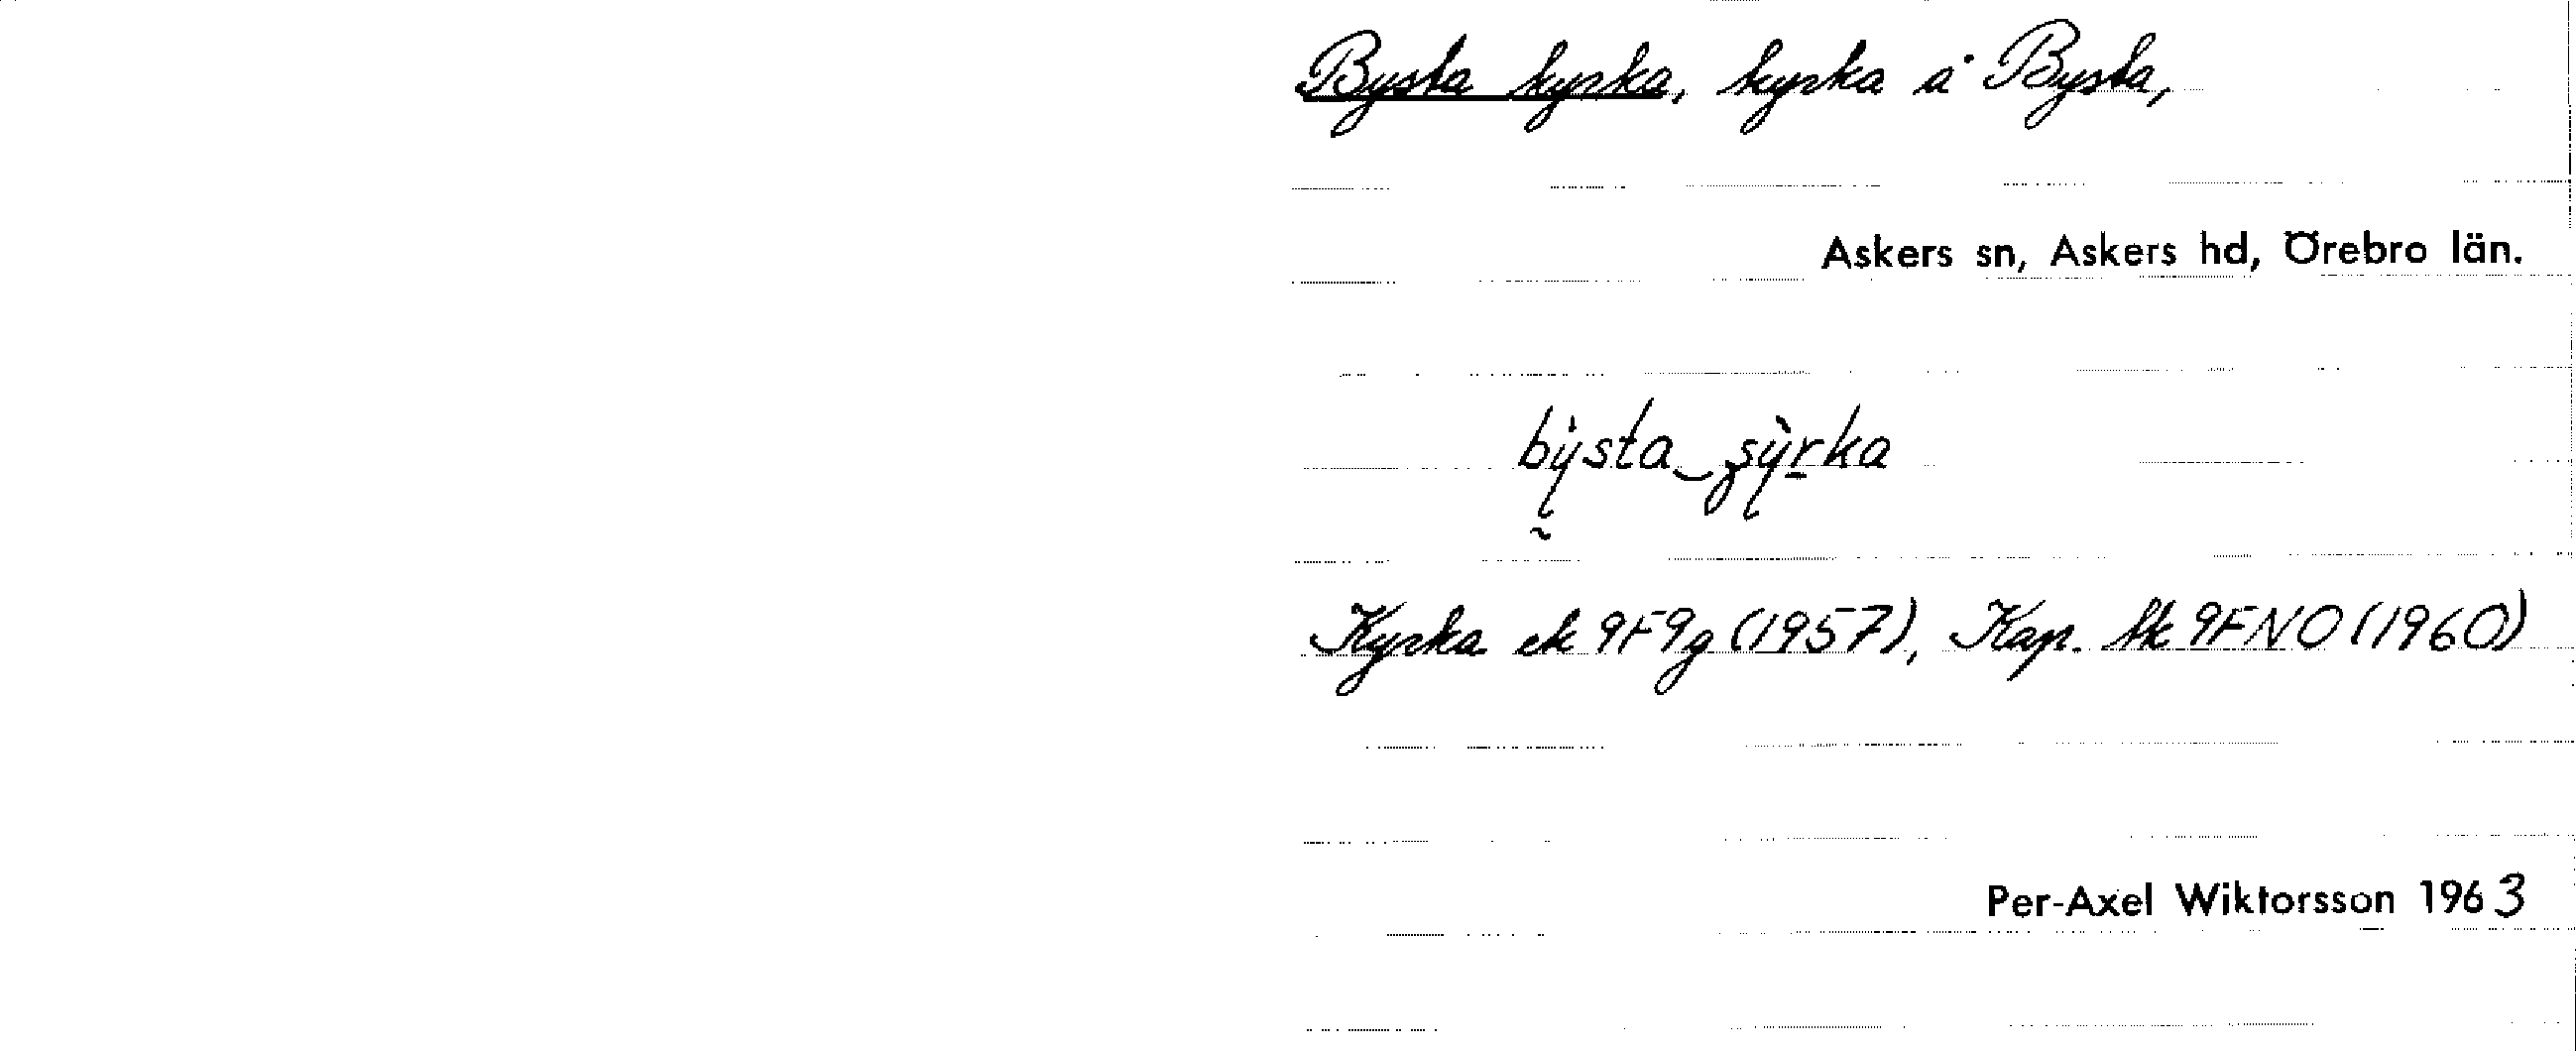 Bysta kyrka, kyrka å Bysta,
Askers sn, Askers hd, Örebro län.
bysta‿ʂỳrka
Kyrka ek 9F9g (1957), Kap. tk 9FNO (1960)
Per-Axel Wiktorsson 1963